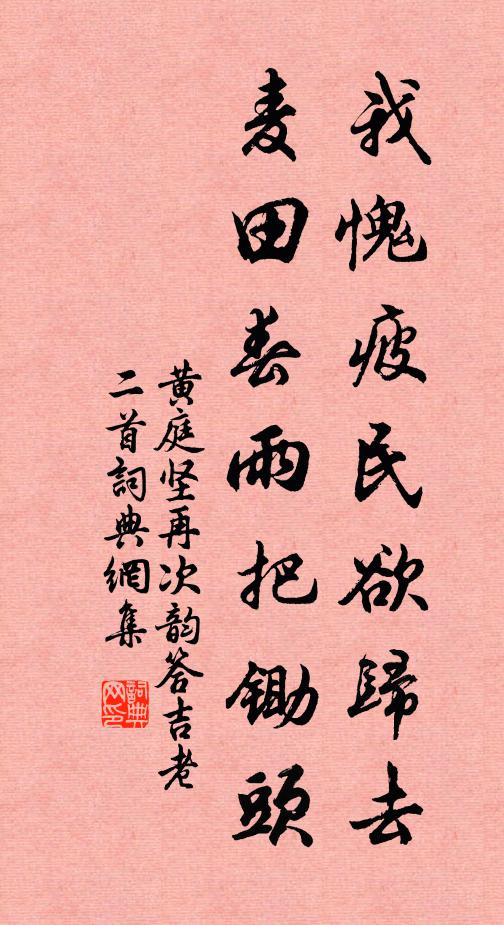 我愧疲民欲歸去
麦田春雨把鋤頭
黄庭坚再次韵答吉老
二首詞典網集
詞典网印